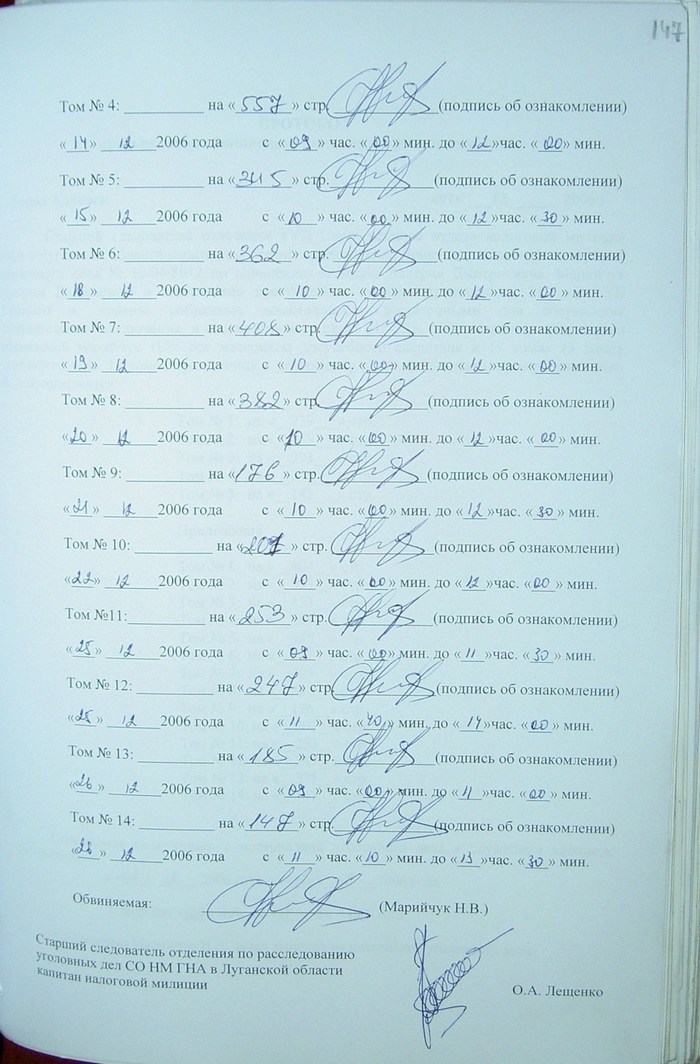 147
Том № 4: __________ на «557» стр. (подпись об ознакомлении)
«14» 12 2006 года с «09» час. «00» мин. до «12»час. «00» мин.
Том № 5: __________ на «345» стр. (подпись об ознакомлении)
«15» 12 2006 года с «10» час. «00» мин. до «12»час. «30» мин.
Том № 6: __________ на «362» стр. (подпись об ознакомлении)
«18» 12 2006 года с «10» час. «00» мин. до «12»час. «00» мин.
Том № 7: __________ на «408» стр. (подпись об ознакомлении)
«19» 12 2006 года с «10» час. «00» мин. до «12»час. «00» мин.
Том № 8: __________ на «382» стр. (подпись об ознакомлении)
«20» 12 2006 года с «10» час. «00» мин. до «12»час. «00» мин.
Том № 9: __________ на «176» стр. (подпись об ознакомлении)
«21» 12 2006 года с «10» час. «00» мин. до «12»час. «30» мин.
Том № 10: __________ на «207» стр. (подпись об ознакомлении)
«22» 12 2006 года с «10» час. «00» мин. до «12»час. «00» мин.
Том №11: __________ на «253» стр. (подпись об ознакомлении)
«25» 12 2006 года с «09» час. «00» мин. до «11»час. «30» мин.
Том № 12: __________ на «247» стр. (подпись об ознакомлении)
«25» 12 2006 года с «11» час. «40» мин. до «14»час. «00» мин.
Том № 13: __________ на «185» стр. (подпись об ознакомлении)
«26» 12 2006 года с «09» час. «00» мин. до «11»час. «00» мин.
Том № 14: __________ на «147» стр. (подпись об ознакомлении)
12 2006 года с «11» час. «10» мин. до «13»час. «30» мин.
Обвиняемая: (Марийчук Н.В.)
Старший следователь отделения по расследованию
уголовных дел СО НМ ГНА в Луганской области
капитан налоговой милиции О.А. Лещенко